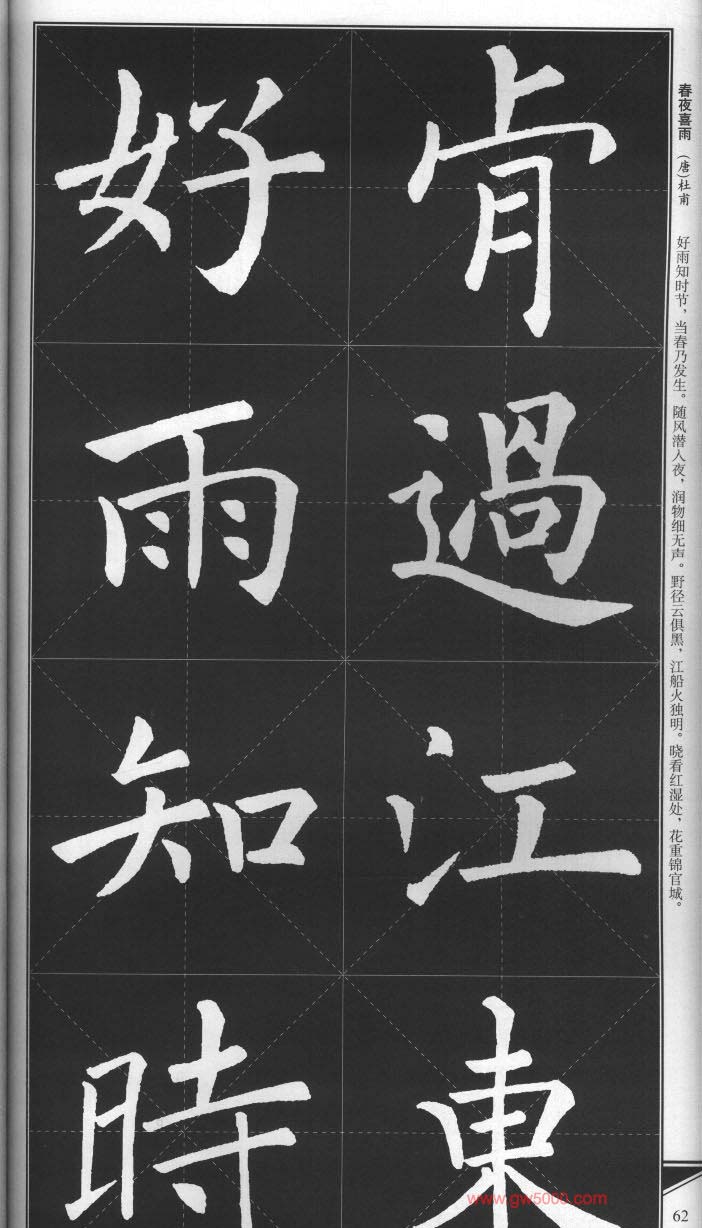 春夜喜雨 （唐）杜甫 好雨知时节，当春乃发生。随风潜入夜，润物细无声。野径云俱黑，江船火独明。晓看红湿处，花重锦官城。
肯過江東
好雨知時
www.gw5000.com
62